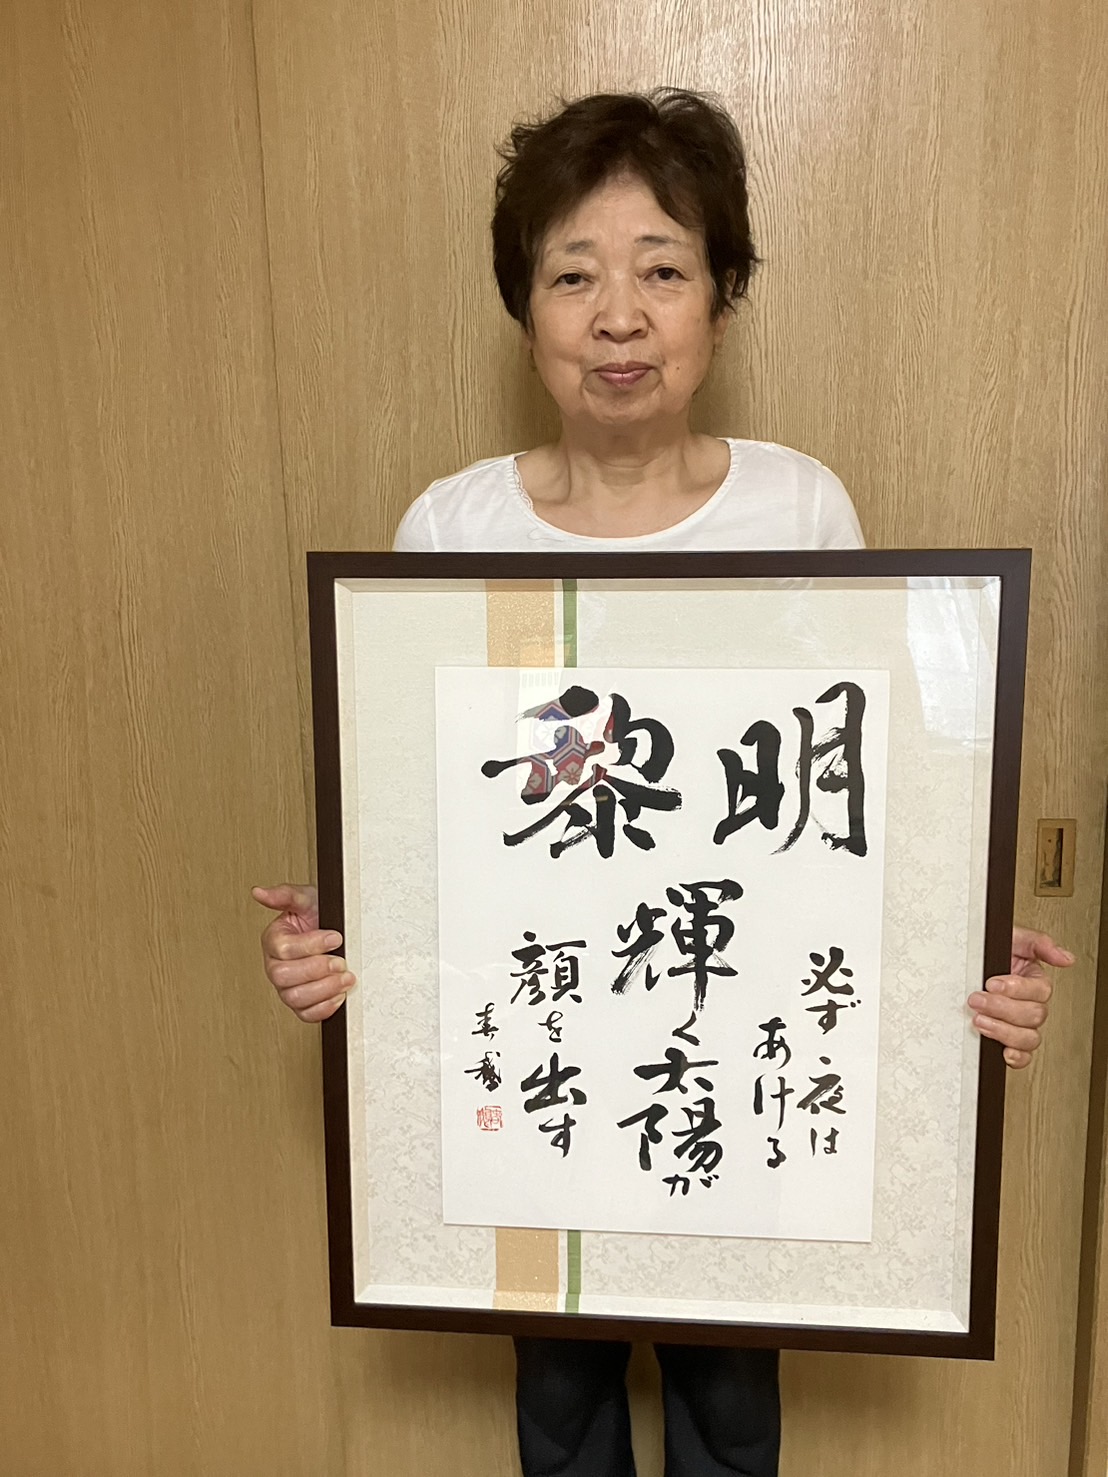 黎明
必ず夜は
あける
輝く太陽が
顔を出す
春